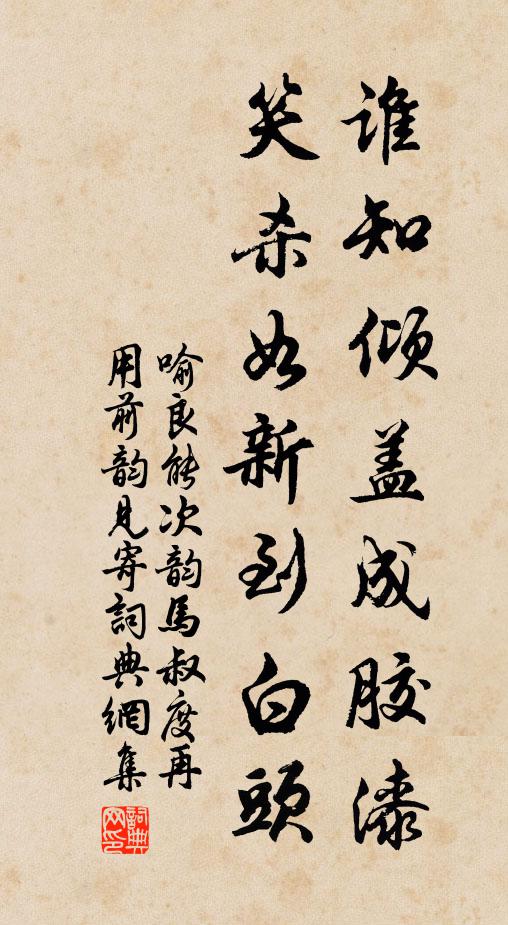 谁知倾盖成胶漆
笑杀如新到白頭
喻良能次韵馬叔度再
用前韵見寄詞典網集
詞典
网印